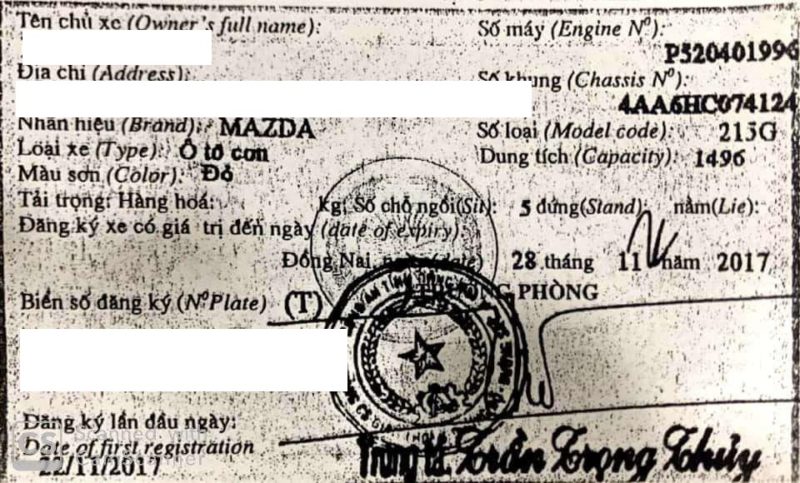 Tên chủ xe (Owner's full name):
Số máy (Engine Nº):
P520401996
Địa chỉ (Address):
Số khung (Chassis Nº):
4AA6HC074124
Nhãn hiệu (Brand): MAZDA
Số loại (Model code): 215G
Loại xe (Type): Ô tô con
Dung tích (Capacity): 1496
Màu sơn (Color): Đỏ
Tải trọng: Hàng hoá: kg; Số chỗ ngồi(Sit): 5 đứng(Stand): nằm(Lie):
Đăng ký xe có giá trị đến ngày (date of expiry):
Đồng Nai, ngày (date) 28 tháng 11 năm 2017
PHÒNG
Biển số đăng ký (NºPlate) (T)
Đăng ký lần đầu ngày:
Date of first registration
22/11/2017
Trung tá. Trần Trọng Thủy
CS
Scanned with